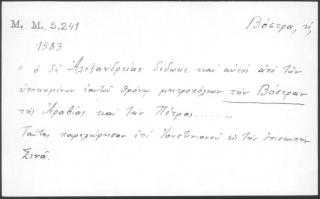 M. M. 5.241
Βόστρα, ἡ,
1583
" ὁ δὲ Ἀλεξανδρείας δέδωκε καὶ αὐτὸς ἀπὸ τῶν
ὑποκειμένων ἑαυτοῦ θρόνῳ μητροπόλεων τὴν Βόστραν
τῆς Ἀραβίας καὶ τὴν Πέτραν.......,,
Ταύτας παρεχώρησαν ἐπὶ Ἰουστινιανοῦ εἰς τὴν ἐπισκοπὴν
Σινᾶ.